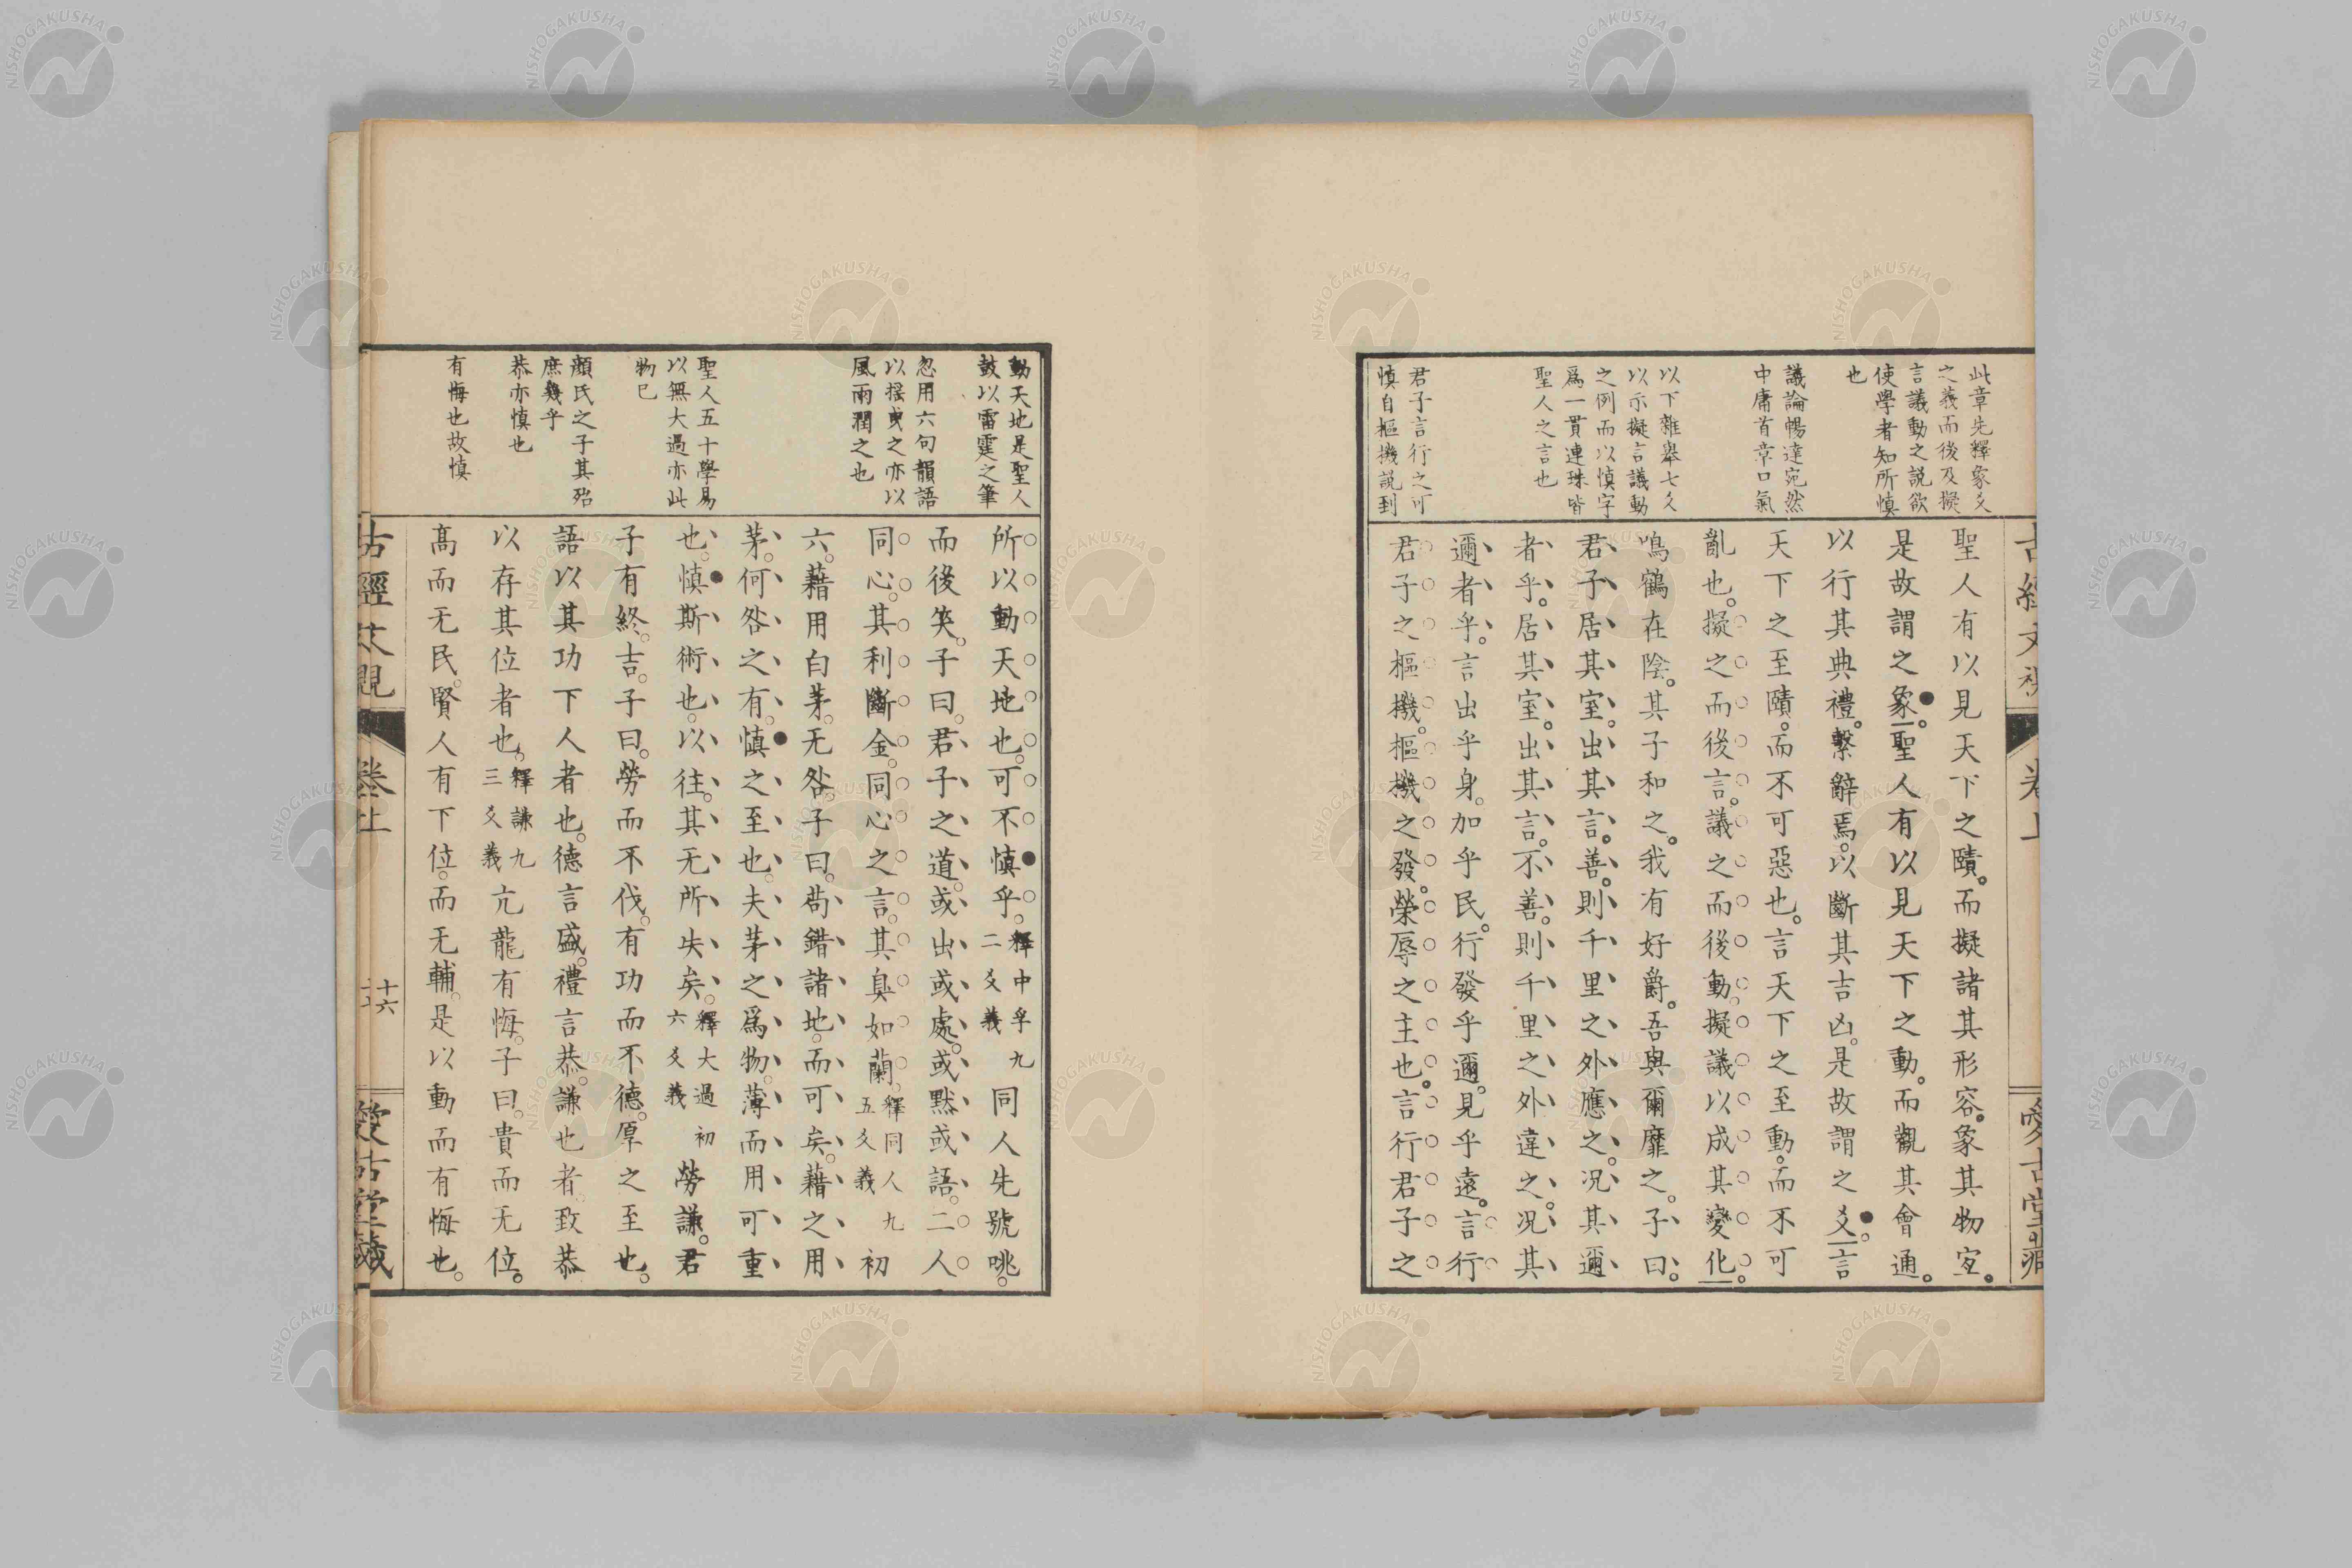 此章先釋象爻
之義而後及擬
言議動之説欲
使學者知所慎
也
議論暢達宛然
中庸首章口氣
以下雜舉七爻
以示擬言議動
之例而以慎字
爲一貫連珠皆
聖人之言也
君子言行之可
慎自樞機説到
聖人有以見天下之賾。而擬諸其形容。象其物宜。
是故謂之象。聖人有以見天下之動。而觀其會通。
以行其典禮。繫辭焉。以斷其吉凶。是故謂之爻。言
天下之至賾。而不可惡也。言天下之至動。而不可
亂也。擬之而後言。議之而後動。擬議以成其變化。
鳴鶴在陰。其子和之。我有好爵。吾與爾靡之。子曰。
君子居其室。出其言。善。則千里之外應之。况其邇
者乎。居其室。出其言。不善。則千里之外違之。况其
邇者乎。言出乎身。加乎民。行發乎邇。見乎遠。言行
君子之樞機。樞機之發。榮辱之主也。言行君子之
動天地是聖人
鼓以雷霆之筆
忽用六句韻語
以揺曵之亦以
風雨潤之也
聖人五十學易
以無大過亦此
物已
顔氏之子其殆
庶幾乎
恭亦慎也
有悔也故慎
所以動天地也。可不慎乎。釋中孚九二爻義同人先號咷。
而後笑。子曰。君子之道。或出或處。或默或語。二人
同心。其利斷金。同心之言。其臭如蘭。釋同人九五爻義初
六。藉用白茅。无咎。子曰。苟錯諸地。而可矣。藉之用
茅。何咎之有。慎之至也。夫茅之爲物。薄而用可重
也。慎斯術也。以往。其无所失矣。釋大過初六爻義勞謙。君
子有終。吉。子曰。勞而不伐。有功而不德。厚之至也。
語以其功下人者也。德言盛。禮言恭。謙也者。致恭
以存其位者也。釋謙九三爻義亢龍有悔。子曰。貴而无位。
高而无民。賢人有下位。而无輔。是以動而有悔也。